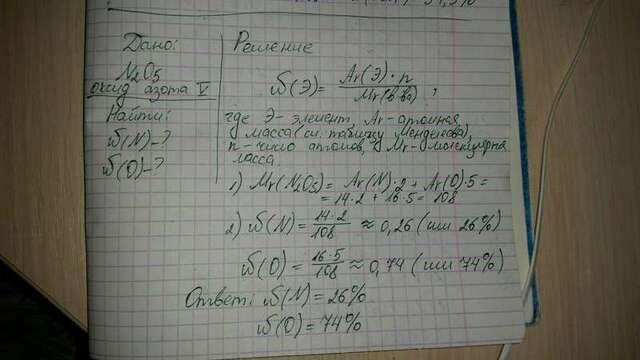 31,5%
Дано:
N₂O₅
оксид азота V
Найти:
ω(N)-?
ω(O)-?
Решение
ω(Э)= Ar(Э)·n / Mr(в-ва) ,
где Э- элемент, Ar-атомная
масса (см. таблицу Менделеева),
n-число атомов, Mr-молекулярная
масса.
1) Mr(N₂O₅) = Ar(N)·2 + Ar(O)·5 =
= 14·2 + 16·5 = 108
2) ω(N) = 14·2 / 108 ≈ 0,26 (или 26%)
ω(O) = 16·5 / 108 ≈ 0,74 (или 74%)
Ответ: ω(N) = 26%
ω(O) = 74%